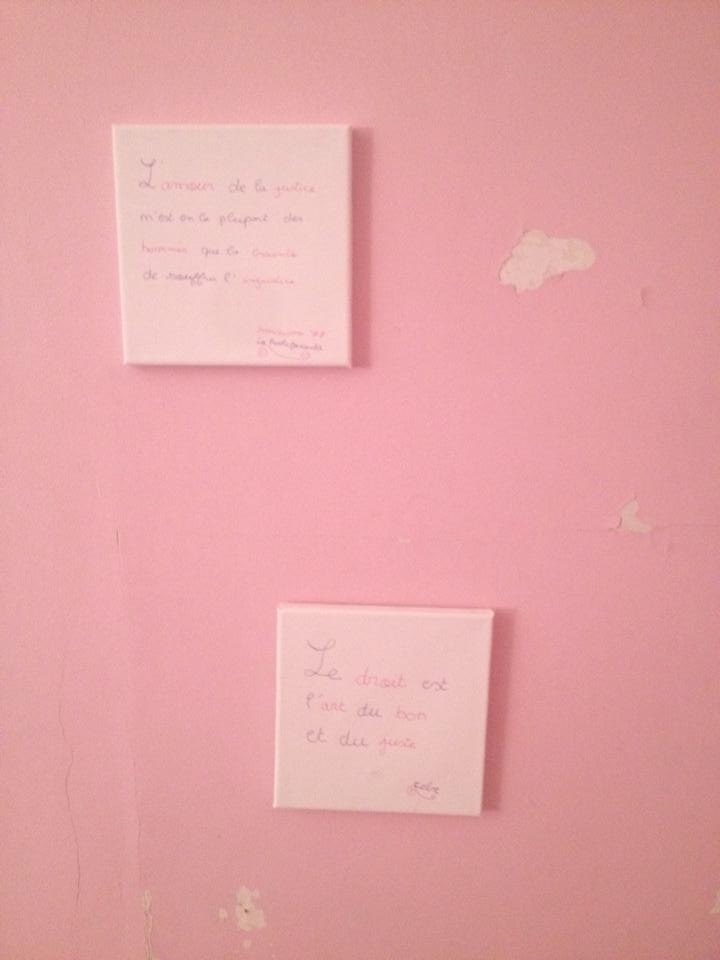 L'amour de la justice
n'est en la plupart des
hommes que la crainte
de souffrir l'injustice
Maxime 78
La Rochefoucauld
Le droit est
l'art du bon
et du juste
Celse